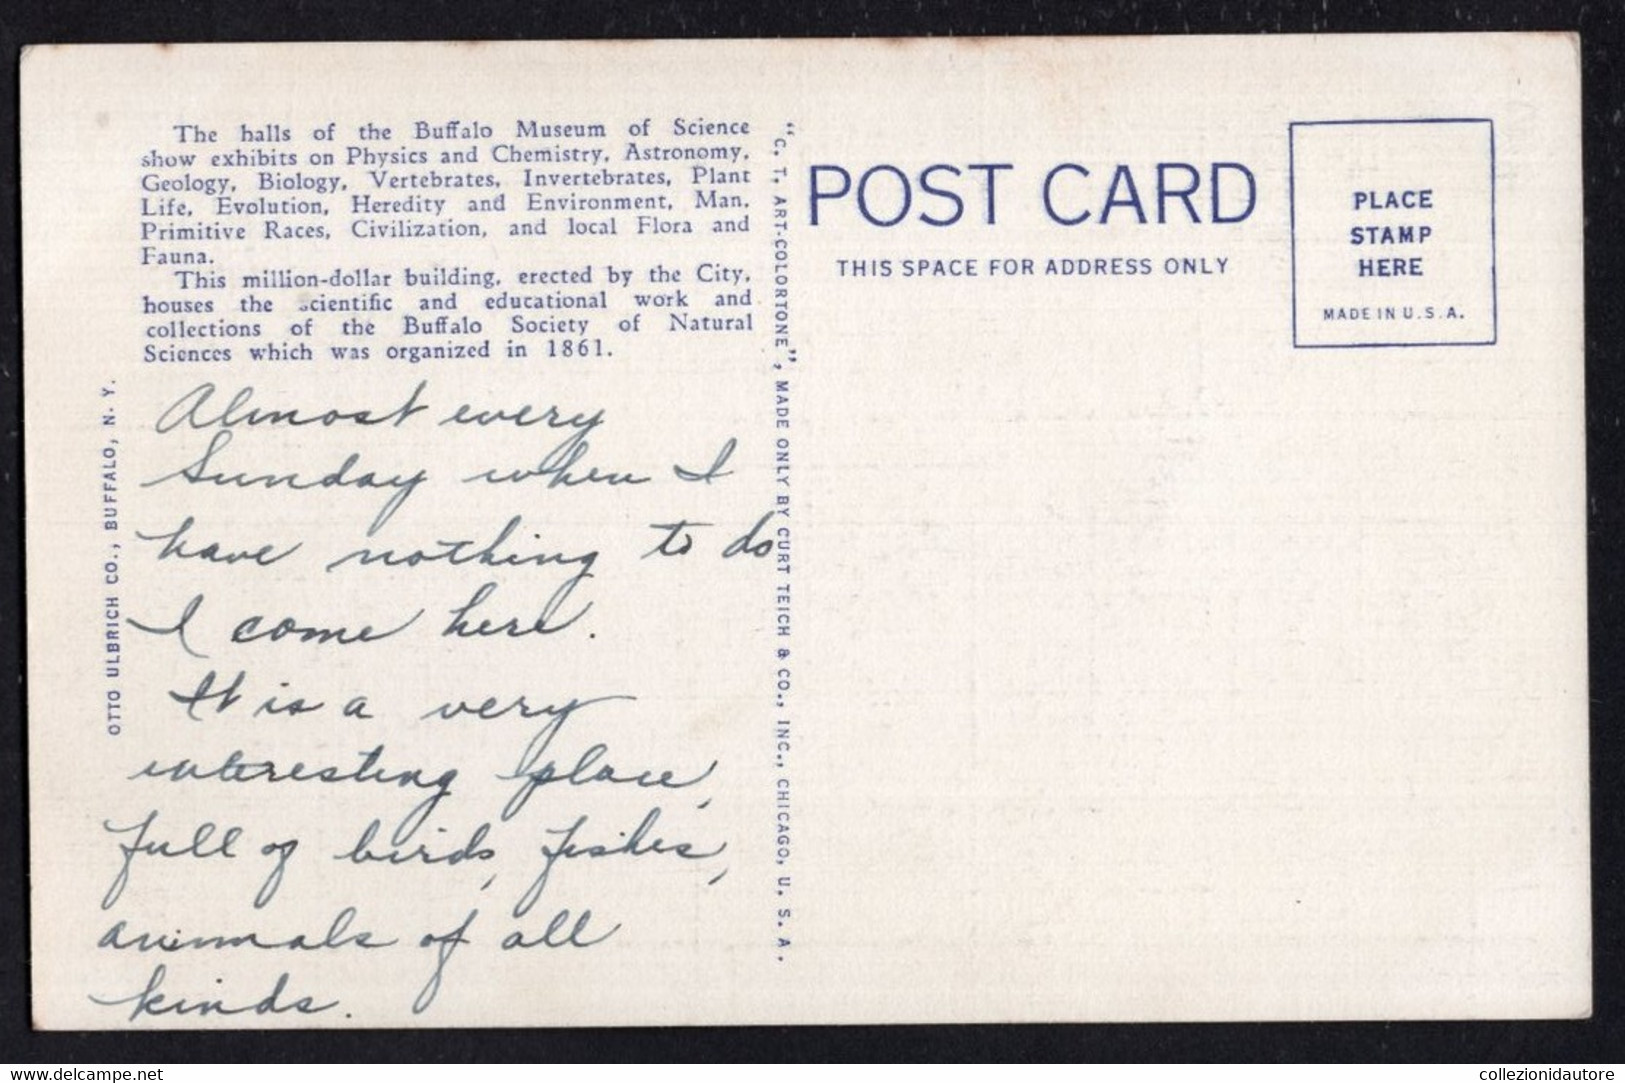 The halls of the Buffalo Museum of Science
show exhibits on Physics and Chemistry, Astronomy,
Geology, Biology, Vertebrates, Invertebrates, Plant
Life, Evolution, Heredity and Environment, Man,
Primitive Races, Civilization, and local Flora and
Fauna.
This million-dollar building, erected by the City,
houses the scientific and educational work and
collections of the Buffalo Society of Natural
Sciences which was organized in 1861.
OTTO ULBRICH CO., BUFFALO, N. Y.
Almost every
Sunday when I
have nothing to do
I come here.
It is a very
interesting place,
full of birds, fishes,
animals of all
kinds.
"C. T. ART-COLORTONE", MADE ONLY BY CURT TEICH & CO., INC., CHICAGO, U. S. A.
POST CARD
THIS SPACE FOR ADDRESS ONLY
PLACE
STAMP
HERE
MADE IN U.S.A.
www.delcampe.net
collezionidautore